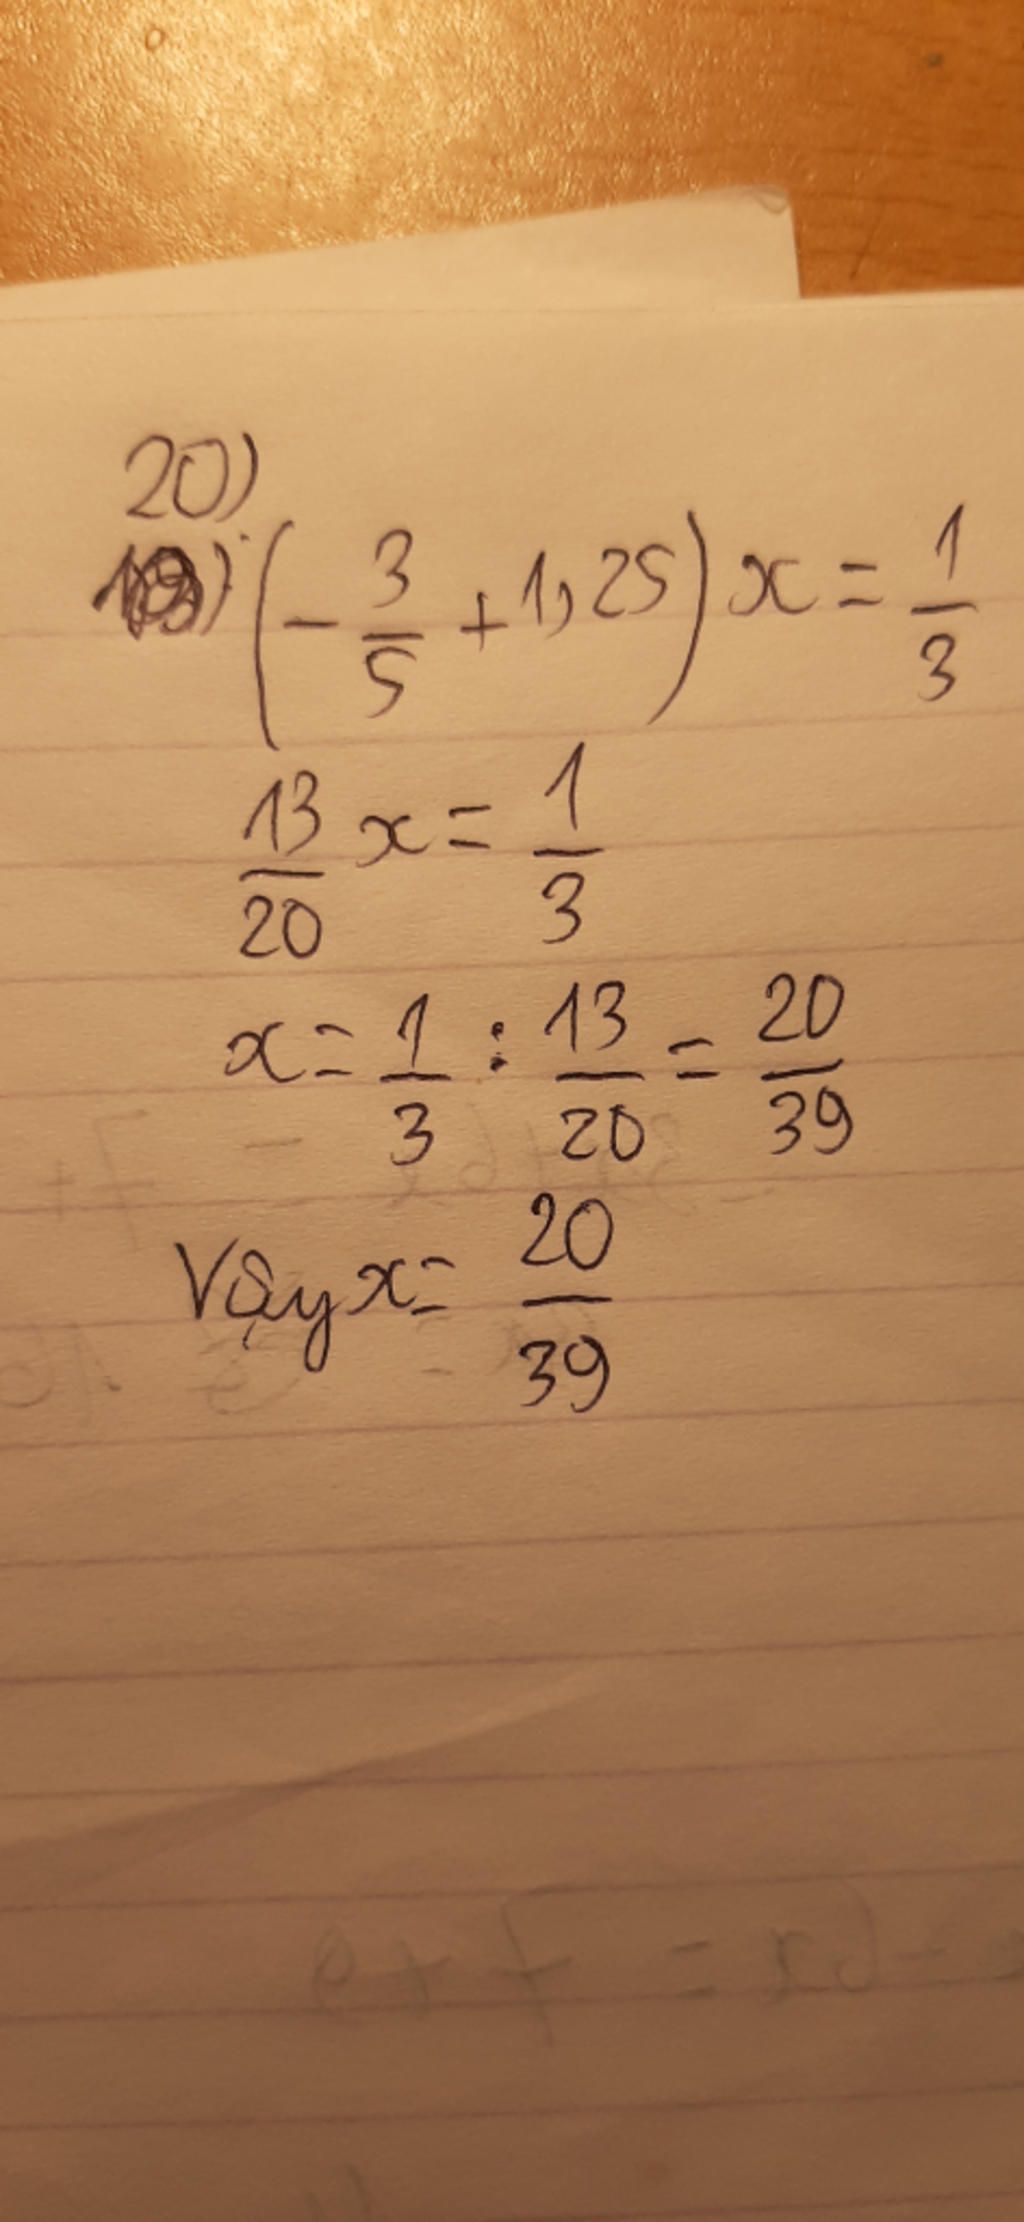 20)
(-3/5 + 1,25) x = 1/3
13/20 x = 1/3
x = 1/3 : 13/20 = 20/39
Vậy x = 20/39